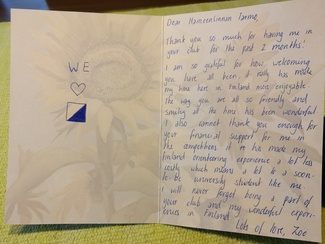 WE
Dear Hämeenlinnan Tarmo,
Thank you so much for having me in
your club for the past 2 months!
I am so grateful for how welcoming
you have all been, it really has made
my time here in Finland more enjoyable.
The way you are all so friendly and
smiling all the time has been wonderful.
I also cannot thank you enough for
your financial support for me in
the competitions it has made my
Finland orienteering experience a lot less
costly which means a lot to a soon-
to be university student like me.
I will never forget being a part of
your club and my wonderful experi-
ences in Finland.
Lots of love, Zoe